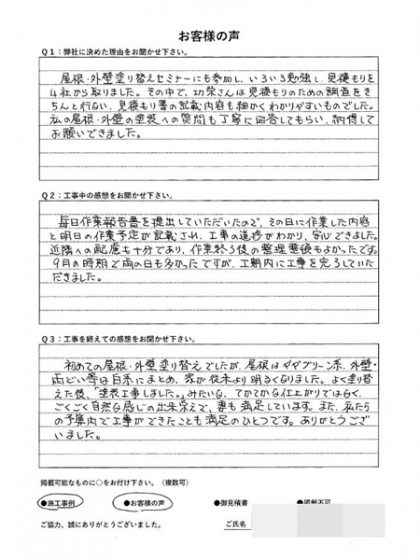 お客様の声
Q1：弊社に決めた理由をお聞かせ下さい。
屋根・外壁塗り替えセミナーにも参加し、いろいろ勉強し、見積もりを
4社から取りました。その中で、功栄さんは見積もりのための調査をき
ちんと行ない、見積もり書の記載内容も細かくわかりやすいものでした。
私の屋根・外壁の塗装への質問も丁寧に回答してもらい、納得して
お願いできました。
Q2：工事中の感想をお聞かせ下さい。
毎日作業報告書を提出していただいたので、その日に作業した内容
と明日の作業予定が記載され、工事の進捗がわかり、安心できました。
近隣への配慮も十分であり、作業終了後の整理整頓もよかったです。
9月の時期で雨の日も多かったですが、工期内に工事を完了していた
だきました。
Q3：工事を終えての感想をお聞かせ下さい。
初めての屋根・外壁塗り替えでしたが、屋根はグリーン系、外壁・
雨どい等は白系にまとめ、家が従来より明るくなりました。よく塗り替
えた後、「塗装工事しました。」みたいな、てかてかな仕上がりではなく、
ごくごく自然な感じの出来栄えで、妻も満足しています。また、私たち
の予算内で工事ができたことも満足のひとつです。ありがとうござ
いました。
掲載可能なものに○をお付け下さい。（複数可）
●施工事例 ●お客様の声 ●御見積書 ●掲載不可
ご協力、誠にありがとうございました。 ご氏名